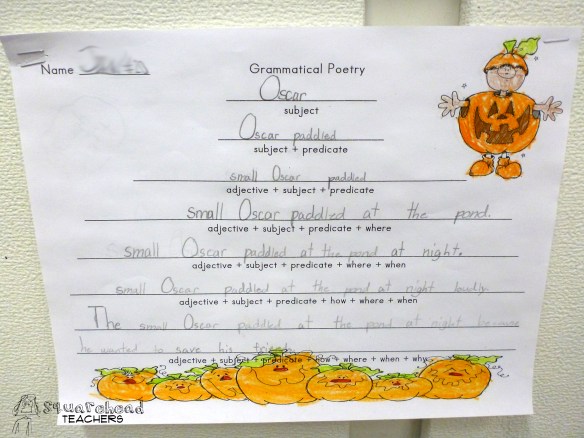 Name
Grammatical Poetry
Oscar
subject
Oscar paddled
subject + predicate
small Oscar paddled
adjective + subject + predicate
small Oscar paddled at the pond.
adjective + subject + predicate + where
small Oscar paddled at the pond at night.
adjective + subject + predicate + where + when
small Oscar paddled at the pond at night loudly.
adjective + subject + predicate + how + where + when
The small Oscar paddled at the pond at night because
he wanted to save his friends
adjective + subject + predicate + how + where + when + why
squarehead
TEACHERS